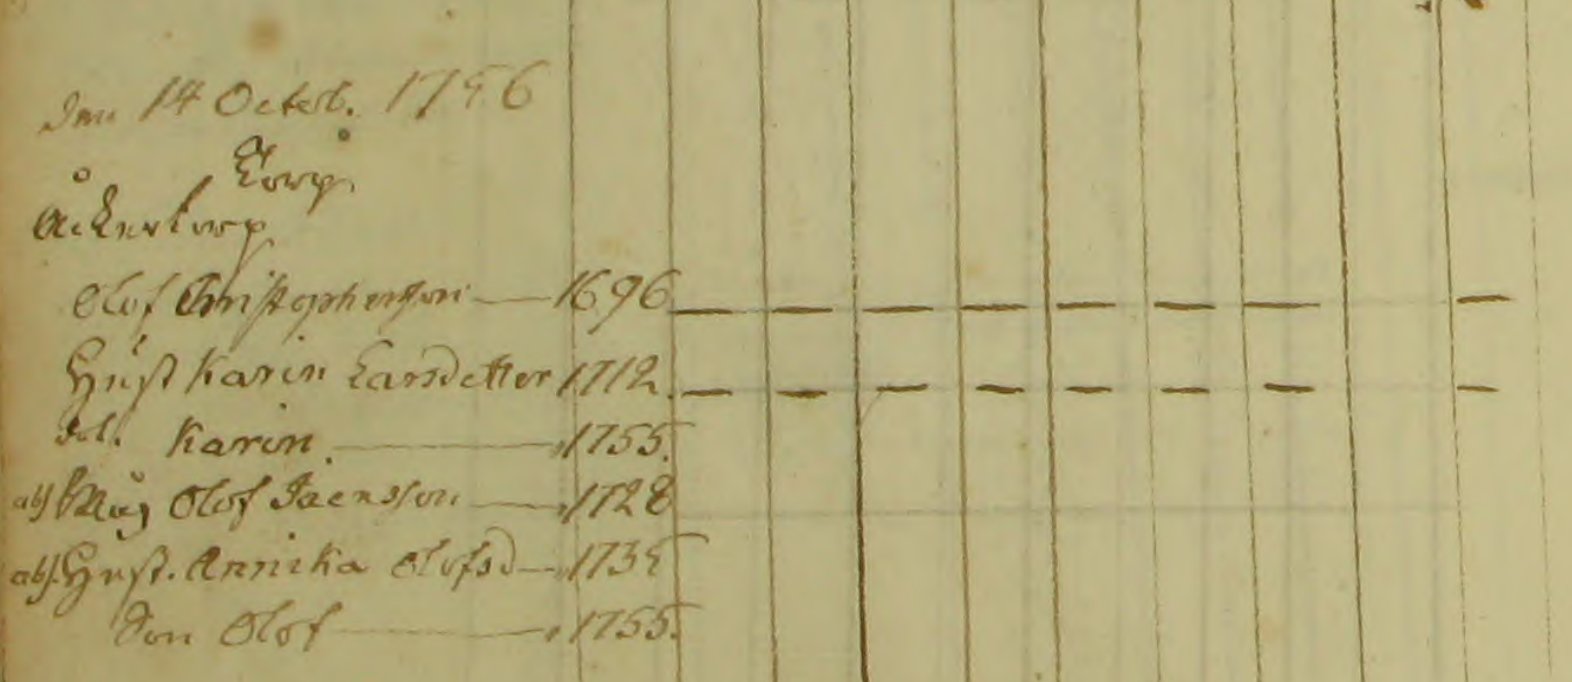 Den 14 Octob. 1756
Torp
Åckertorp
Olof Christophersson 1696
Hust Karin Larsdotter 1712.
dot. Karin. 1755.
abs Måg Olof Jaensson 1728
abs. Hust. Annika Olofsd 1735
Son Olof 1755.